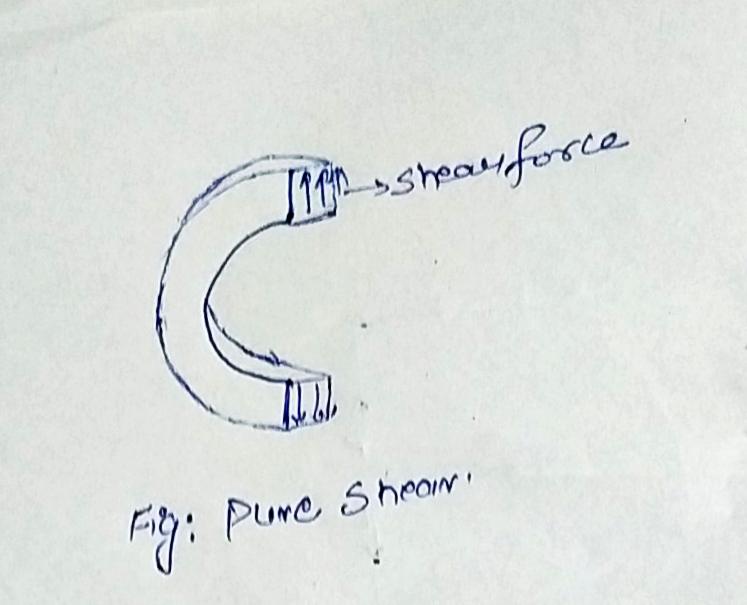 shear force
Fig: Pure Shear.